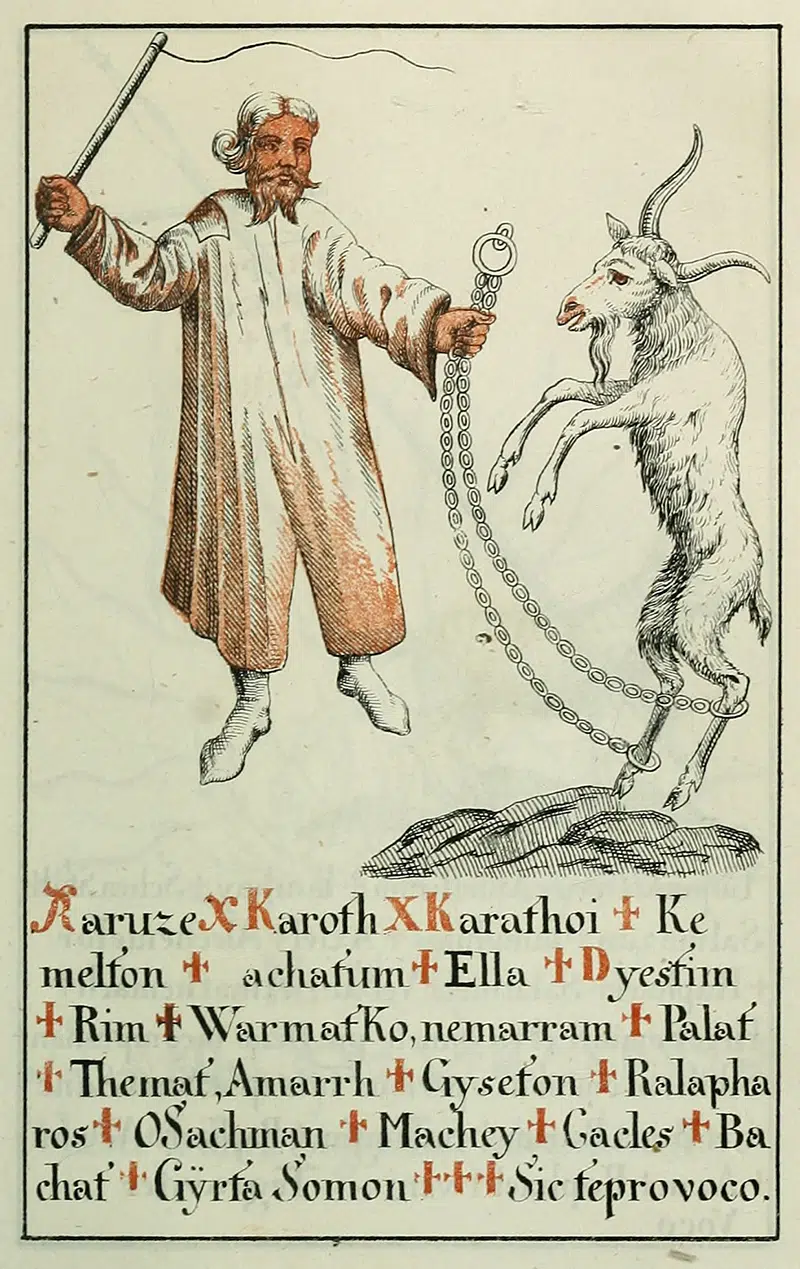 Karuze X Karoth X Karathoi + Ke
melton + achatum + Ella + Dyestim
+ Rim + Warmatko, nemarram + Palat
+ Themat, Amarrh + Gyseton + Ralapha
ros + OSachman + Machey + Gacles + Ba
chat + Gÿrta Somon + + + Sic te provoco.